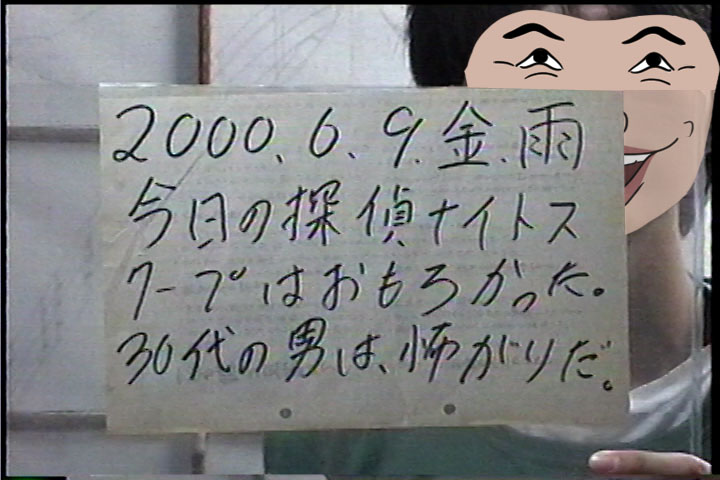 2000.6.9.金.雨
今日の探偵ナイトス
クープはおもろかった。
30代の男は、怖がりだ。